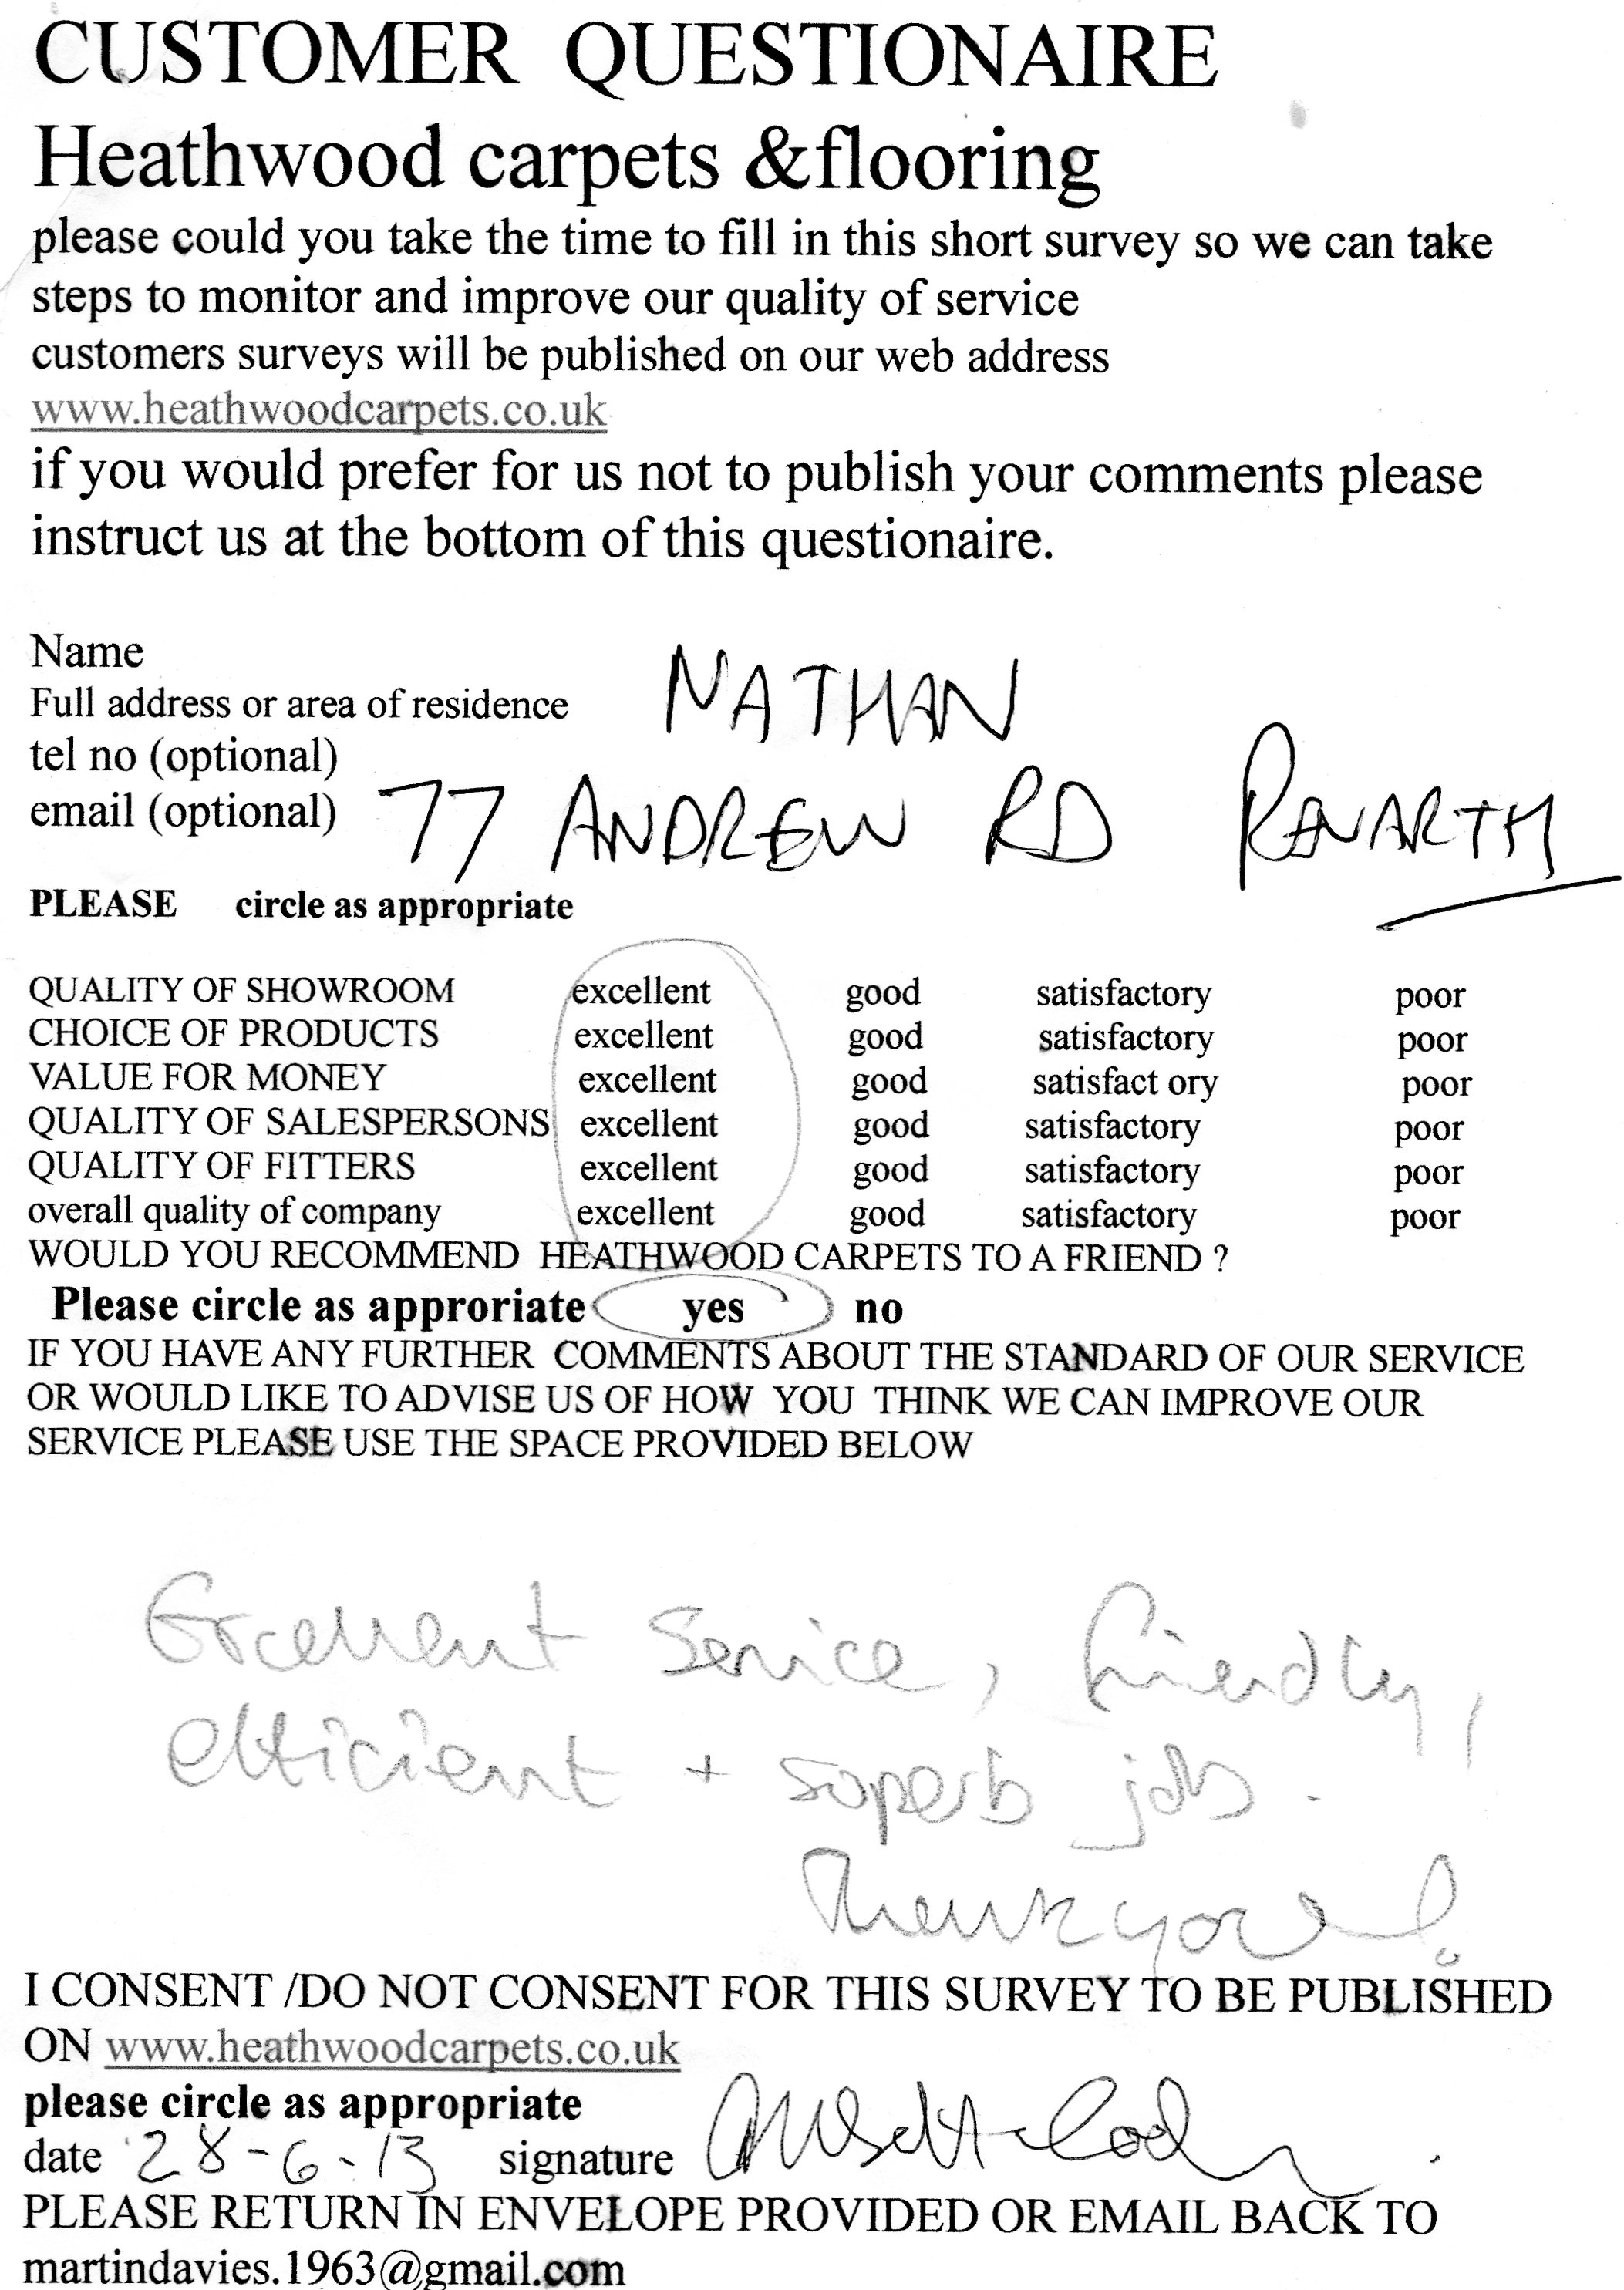 CUSTOMER QUESTIONAIRE
Heathwood carpets &flooring
please could you take the time to fill in this short survey so we can take
steps to monitor and improve our quality of service
customers surveys will be published on our web address
www.heathwoodcarpets.co.uk
if you would prefer for us not to publish your comments please
instruct us at the bottom of this questionaire.
Name
NATHAN
Full address or area of residence
tel no (optional)
email (optional) 77 ANDREW RD PENARTH
PLEASE circle as appropriate
QUALITY OF SHOWROOM excellent good satisfactory poor
CHOICE OF PRODUCTS excellent good satisfactory poor
VALUE FOR MONEY excellent good satisfact ory poor
QUALITY OF SALESPERSONS excellent good satisfactory poor
QUALITY OF FITTERS excellent good satisfactory poor
overall quality of company excellent good satisfactory poor
WOULD YOU RECOMMEND HEATHWOOD CARPETS TO A FRIEND ?
Please circle as approriate yes no
IF YOU HAVE ANY FURTHER COMMENTS ABOUT THE STANDARD OF OUR SERVICE
OR WOULD LIKE TO ADVISE US OF HOW YOU THINK WE CAN IMPROVE OUR
SERVICE PLEASE USE THE SPACE PROVIDED BELOW
Excellent Service, friendly,
efficient + superb job.
Thank you!
I CONSENT /DO NOT CONSENT FOR THIS SURVEY TO BE PUBLISHED
ON www.heathwoodcarpets.co.uk
please circle as appropriate
date 28-6-13 signature
PLEASE RETURN IN ENVELOPE PROVIDED OR EMAIL BACK TO
martindavies.1963@gmail.com